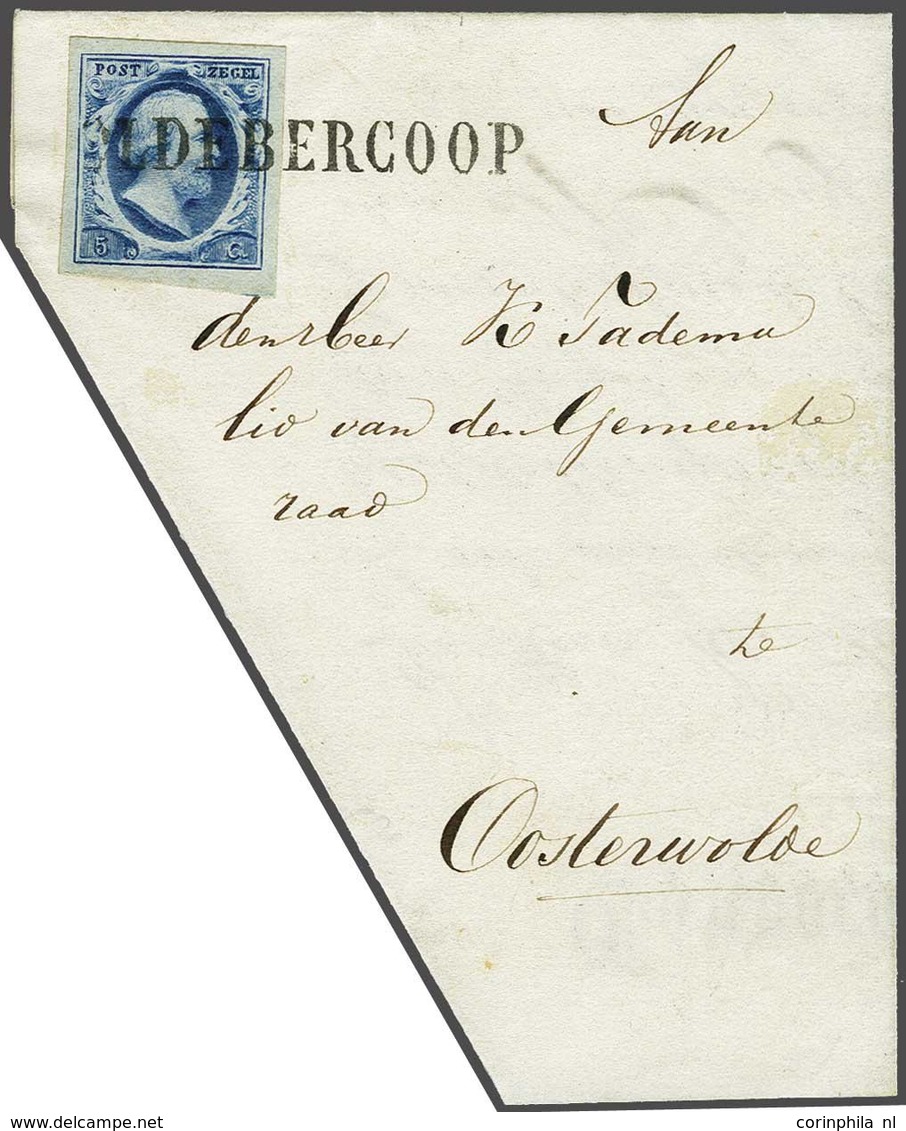 POST ZEGEL
5 C.
OLDEBERCOOP
Aan
den Heer K Tadema
lid van den Gemeente
raad
te
Oosterwolde
delcampe.net
corinphila nl